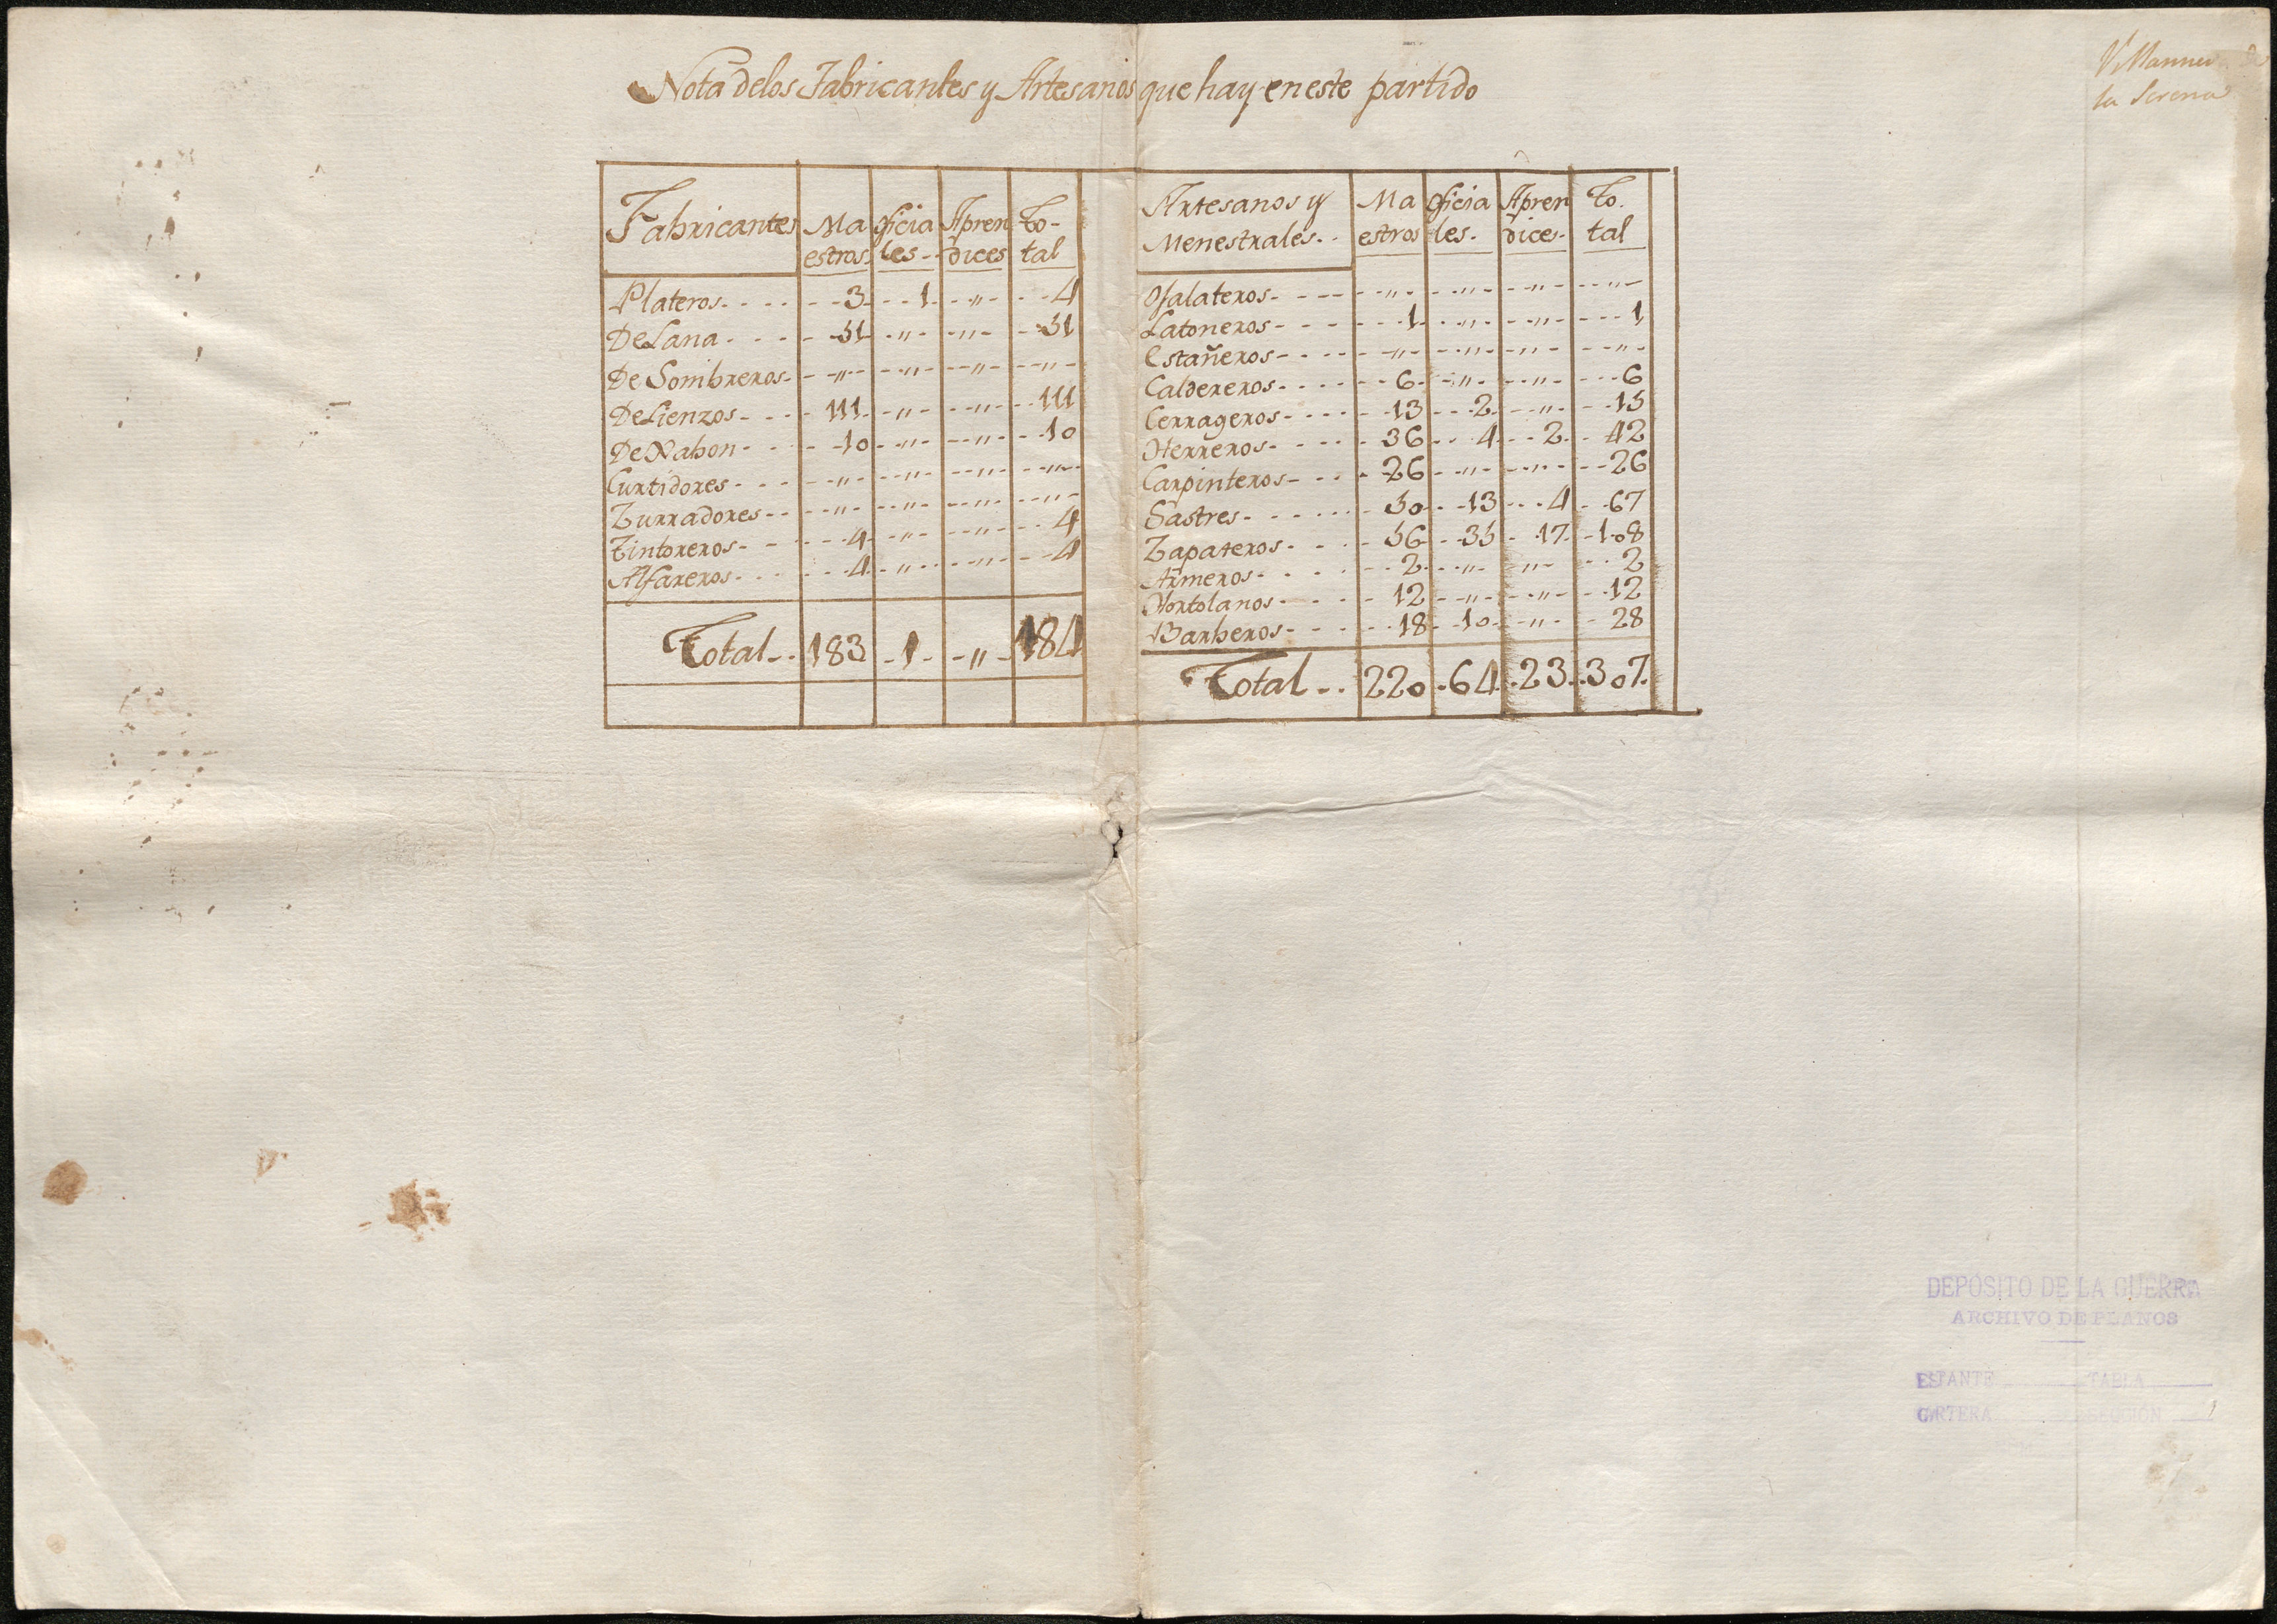 Nota de los Fabricantes y Artesanos que hay en este partido
Villanueva de
la Serena
Fabricantes Maestros Oficiales Aprendices Total
Plateros 3 1 " 4
De Lana 51 " " 51
De Sombreros " " " "
De Lienzos 111 " " 111
De Xabon 10 " " 10
Curtidores " " " "
Zurradores " " " "
Tintoreros 4 " " 4
Alfareros 4 " " 4
Total 183 1 " 184
Artesanos y Menestrales Maestros Oficiales Aprendices Total
Ojalateros " " " "
Latoneros 1 " " 1
Estañeros " " " "
Caldereros 6 " " 6
Cerrageros 13 2 " 15
Herreros 36 4 2 42
Carpinteros 26 " " 26
Sastres 50 13 4 67
Zapateros 56 35 17 108
Armeros 2 " " 2
Hortolanos 12 " " 12
Barberos 18 10 " 28
Total 220 64 23 307
DEPÓSITO DE LA GUERRA
ARCHIVO DE PLANOS
ESTANTE TABLA
CARTERA SECCIÓN